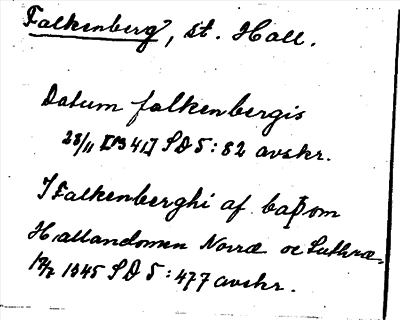 Falkenberg, st. Hall.
Datum falkenbergis
28/11 [1341] SD 5:82 avskr.
I Falkenberghi af baþom
Hallandomen Norræ oc Suthræ,
17/2 1345 SD 5:477 avskr.